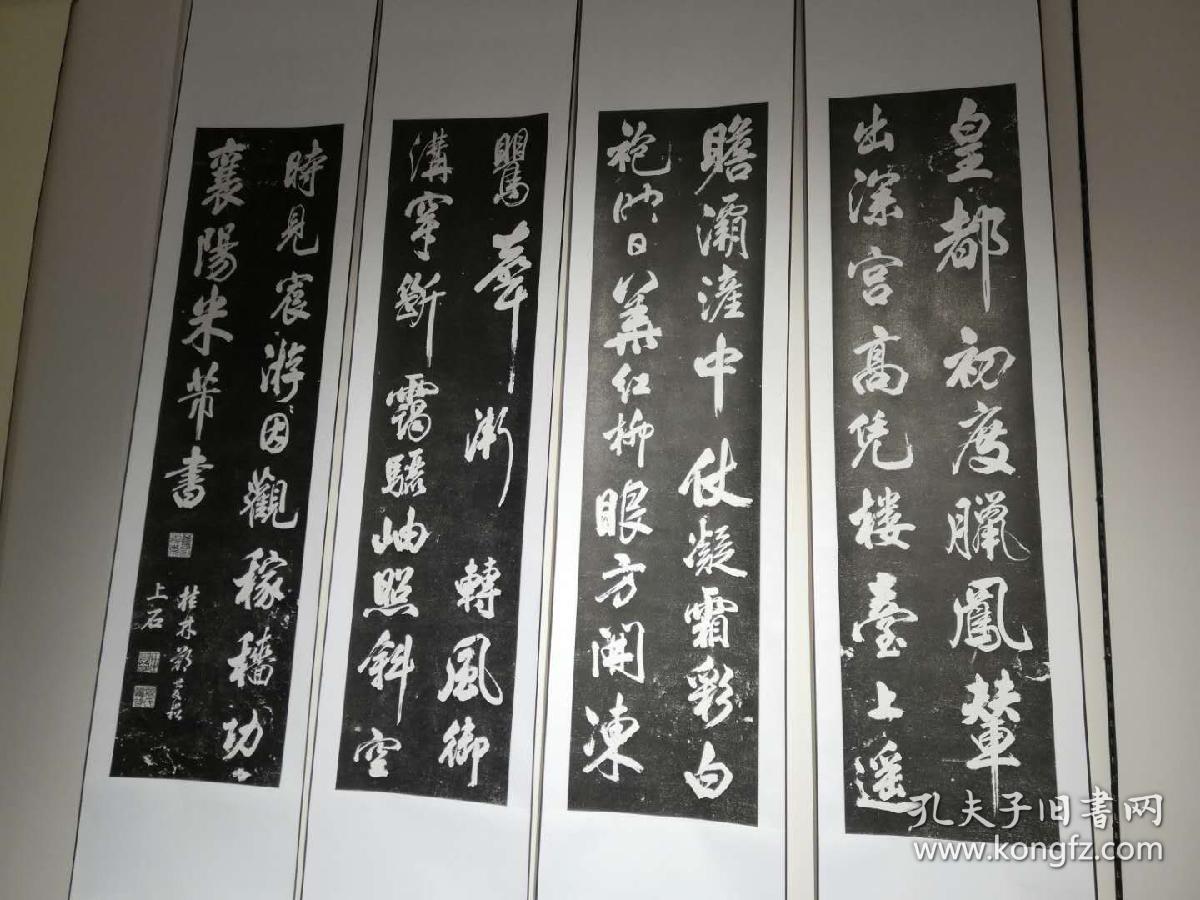 皇都初度臘鳳輦
出深宮高凭楼臺上遥
瞻灞滻中仗凝霜彩白
袍映日華红柳眼方開凍
鸎聲漸轉風御
溝穿断靄驪岫照斜空
時見宸游因觀稼穡功
襄陽米芾書
桂林
上石
孔夫子旧書网
www.kongfz.com